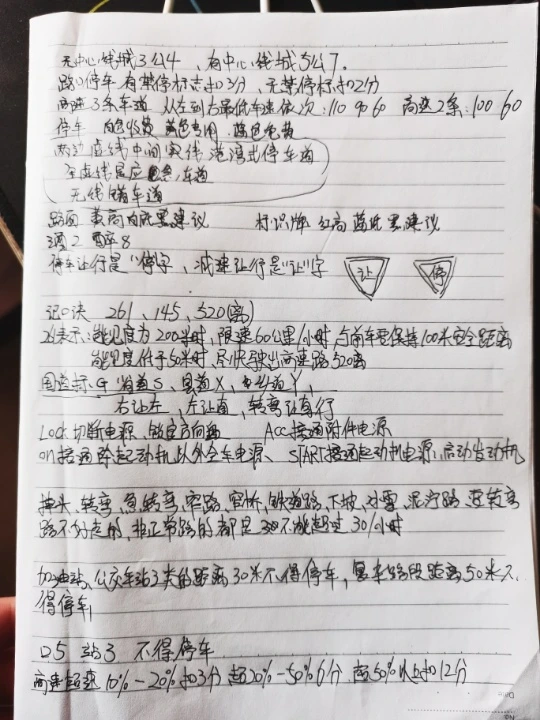 无中心线城3公4、有中心线城5公7.
路口停车有禁停标志扣3分、无禁停标扣2分
高速3条车道 从左到右最低车速依次:110 90 60 高速2条:100 60
停车 白色收费 黄色专用 蓝色免费
两边虚线中间实线 港湾式停车道
全虚线是应急车道
无线储车道
路面 黄高白底黑建议 标识牌 红高蓝低黑建议
酒2 醉8
停车让行是"停"字、减速让行是"让"字 让 停
记口诀 261、145、520(离)
261表示:能见度为200米时,限速60公里/小时,与前车要保持100米安全距离
能见度低于50米时,尽快驶出高速路520离
国道标G 省道S、县道X、乡道Y,
右让左,左让直,转弯让直行
Lock切断电源、锁定方向盘 Acc接通附件电源
on接通除起动机以外全车电源、START接通起动机电源,启动发动机
掉头、转弯、急转弯、窄路、窄桥、铁道路、下坡、冰雪、泥泞路、
路不好走的,非正常路的都是不能超过30/小时
加油站、公交车站3类的距离30米不得停车,
得停车,
口5 站3 不得停车
高速超速10%-20%扣3分 超20%-50%6分 超50%以上扣12分